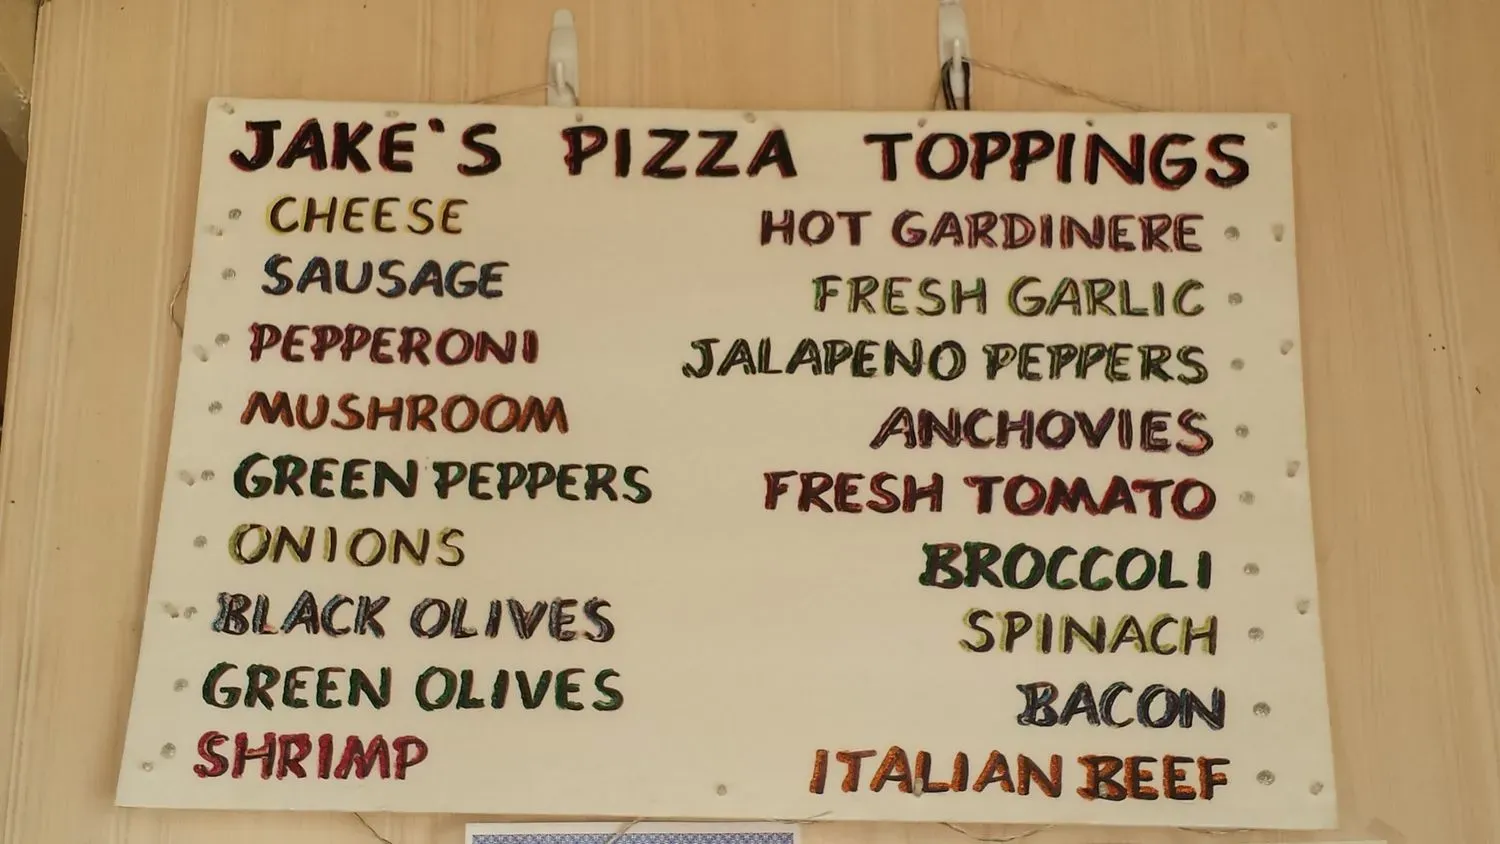 JAKE'S PIZZA TOPPINGS
CHEESE
SAUSAGE
PEPPERONI
MUSHROOM
GREEN PEPPERS
ONIONS
BLACK OLIVES
GREEN OLIVES
SHRIMP
HOT GARDINERE
FRESH GARLIC
JALAPENO PEPPERS
ANCHOVIES
FRESH TOMATO
BROCCOLI
SPINACH
BACON
ITALIAN BEEF